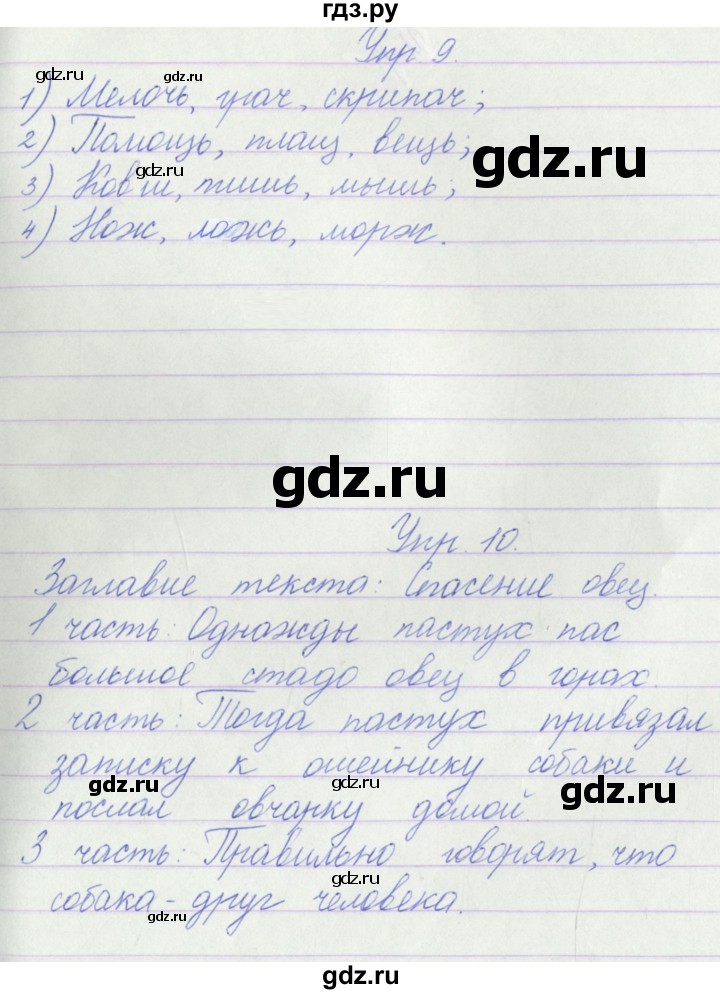 гдз.ру
Упр 9.
gdz.ru
gdz.ru
gdz.ru
1) Мелочь, грач, скрипач;
2) Помощь, плащ, вещь;
gdz.ru
gdz.ru
3) Ковш, тишь, мышь;
gdz.ru
4) Нож, ложь, морж.
gdz.ru
Упр. 10.
Заглавие текста: Спасение овец.
1 часть: Однажды пастух пас
большое стадо овец в горах.
2 часть: Тогда пастух привязал
записку к ошейнику собаки и
gdz.ru
gdz.ru
gdz.ru
послал овчарку домой
3 часть: Правильно говорят, что
gdz.ru
собака - друг человека.
gdz.ru
gdz.ru